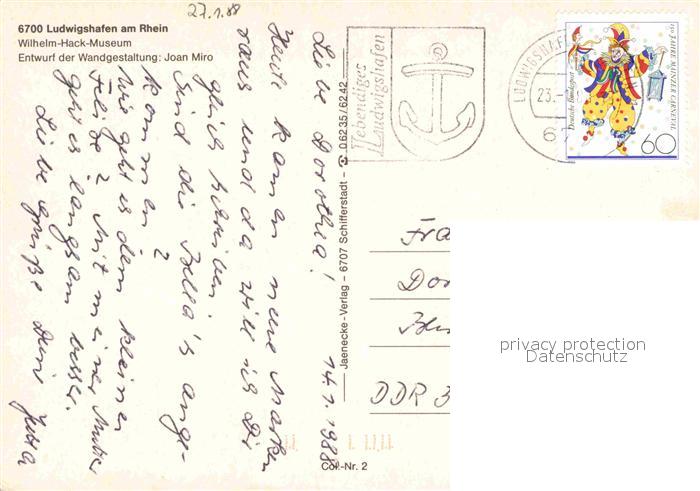 27.1.88
6700 Ludwigshafen am Rhein
Wilhelm-Hack-Museum
Entwurf der Wandgestaltung: Joan Miro
14.1.1988
Liebe Dorothea!
Heute kamen neue Marken
raus und da will ich Dir
gleich schreiben.
Sind die Bella's ange-
kommen?
Wie geht es dem kleinen
Felix? Mit meiner Mutter
geht es langsam besser.
Liebe Grüße Deine Jutta
Jaenecke-Verlag - 6707 Schifferstadt - 0 62 35 / 62 42
Col.-Nr. 2
Lebendiges
Ludwigshafen
LUDWIGSHAF
23.
6
Deutsche Bundespost
150 JAHRE MAINZER CARNEVAL
60
Fra
Dor
DDR 3
privacy protection
Datenschutz